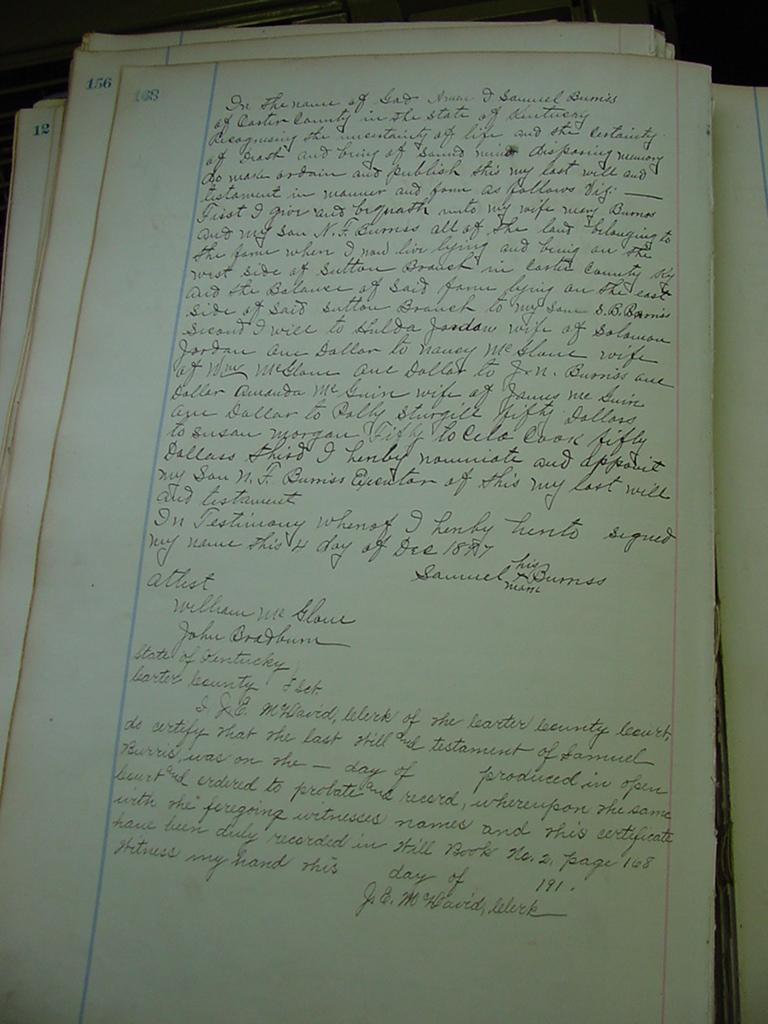 156
168
12
In the name of God Amen I Samuel Burriss
of Carter County in the State of Kentucky
Recognising the uncertainty off life and the certainty
of Death and being of Sound mind disposing memory
do make ordain and publish this my last will and
testament in manner and form as follows Viz. —
First I give and bequath unto my wife Mary Burriss
and my Son N. F. Burriss all of the land belonging to
the farm where I now live lying and being on the
west side of Sutton Branch in Carter County Ky
and the Balance of Said farm lying on the east
Side of Said Sutton Branch to my Son S. B. Burriss
Second I will to Hulda Jordan wife of Solomon
Jordan one Dollar to Nancy McGlone wife
of Wm McGlone one Dollar to J. N. Burriss one
Dollar Amanda McGuin wife of James McGuin
one Dollar to Polly Sturgill fifty Dollars
to Susan Morgan Fifty to Celo Cook fifty
Dollars Third I henby nominate and appoint
my Son N. F. Burriss Executor of this my last will
and testament
In Testimony whereof I henby hento signed
my name this 4 day of Dec
Samuel his X mark Burriss
attest
William McGlone
John Bradburn
State of Kentucky
Carter County Sct.
I J. E. McDavid, Clerk of the Carter County Court,
do certify that the last Will and testament of Samuel
Burris, was on the — day of produced in open
Court and ordered to probate and record, whereupon the same
with the foregoing witnesses names and this certificate
have been duly recorded in Will Book No. 2, page 168
Witness my hand this day of 191 .
J. E. McDavid, Clerk